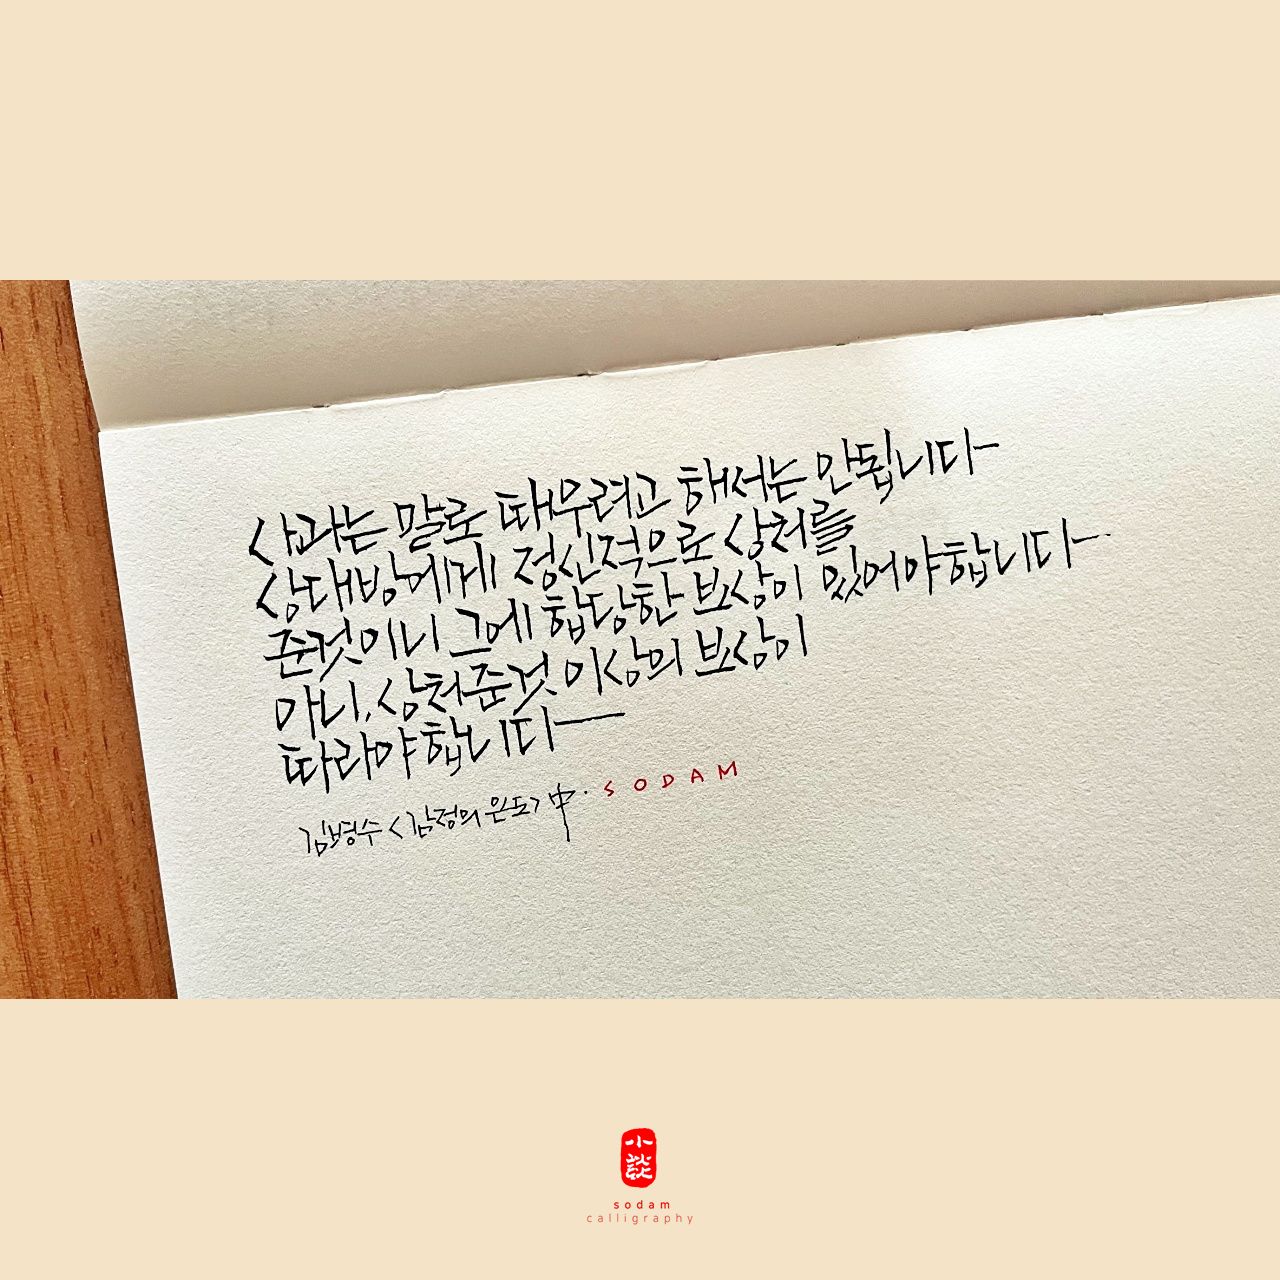 사과는 말로 때우려고 해서는 안됩니다
상대방에게 정신적으로 상처를
준것이니 그에 합당한 보상이 있어야합니다
아니, 상처준것 이상의 보상이
따라야합니다
김병수 <감정의 온도> 中. SODAM
小談
sodam
calligraphy